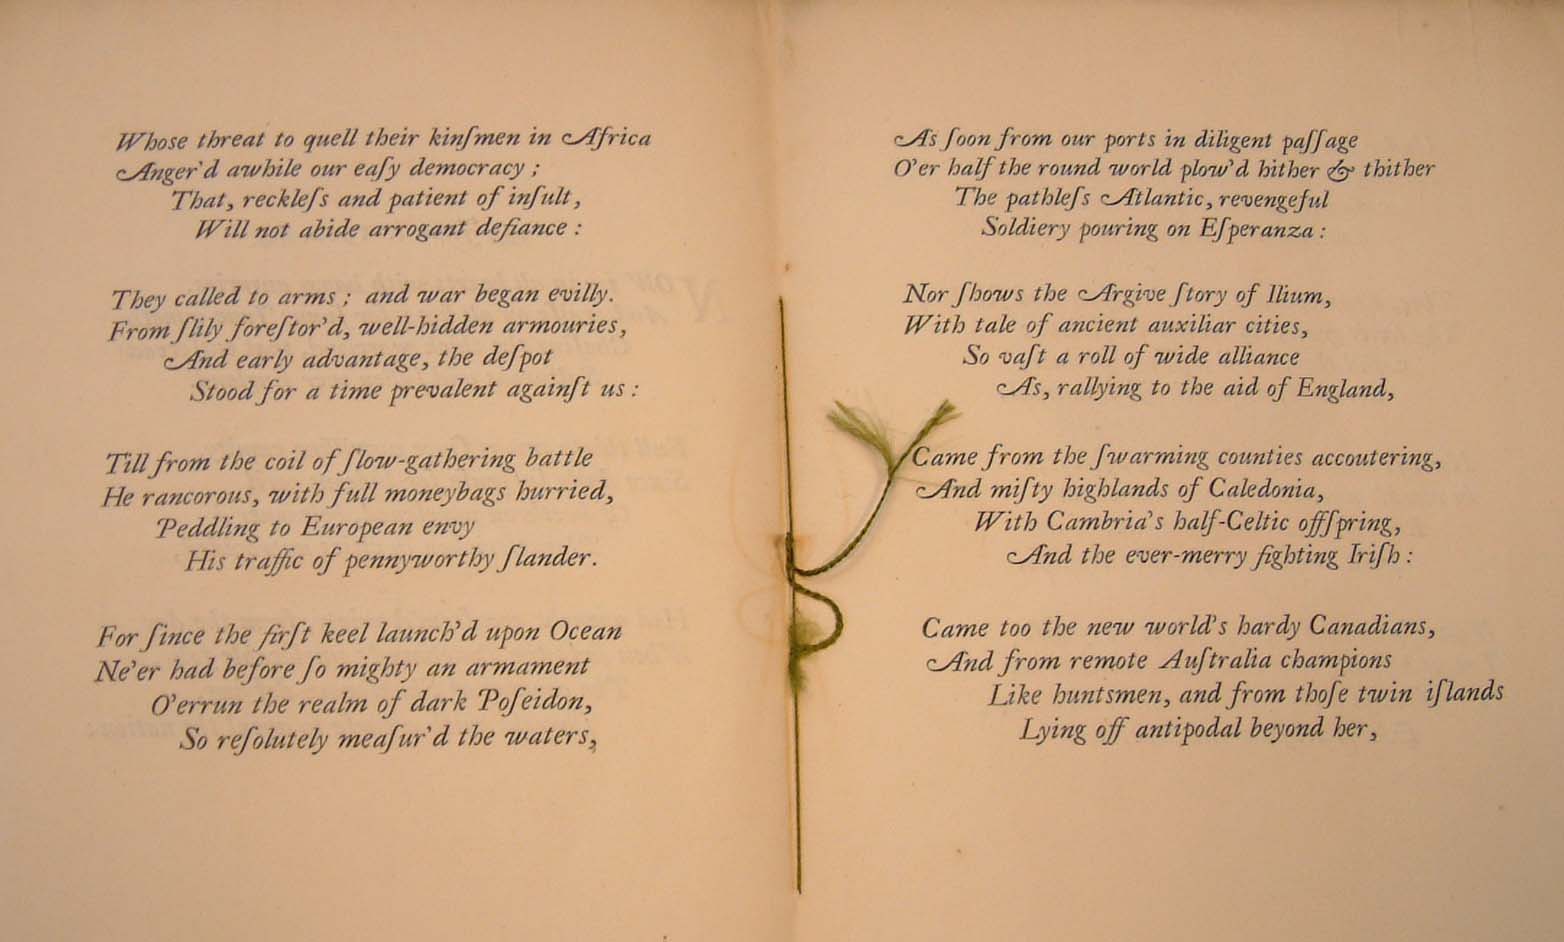 Whose threat to quell their kinſmen in Africa
Anger'd awhile our eaſy democracy ;
That, reckleſs and patient of inſult,
Will not abide arrogant defiance :
They called to arms ; and war began evilly.
From ſlily foreſtor'd, well-hidden armouries,
And early advantage, the deſpot
Stood for a time prevalent againſt us :
Till from the coil of ſlow-gathering battle
He rancorous, with full moneybags hurried,
Peddling to European envy
His traffic of pennyworthy ſlander.
For ſince the firſt keel launch'd upon Ocean
Ne'er had before ſo mighty an armament
O'errun the realm of dark Poſeidon,
So reſolutely meaſur'd the waters,
As ſoon from our ports in diligent paſſage
O'er half the round world plow'd hither & thither
The pathleſs Atlantic, revengeful
Soldiery pouring on Eſperanza :
Nor ſhows the Argive ſtory of Ilium,
With tale of ancient auxiliar cities,
So vaſt a roll of wide alliance
As, rallying to the aid of England,
Came from the ſwarming counties accoutering,
And miſty highlands of Caledonia,
With Cambria's half-Celtic offſpring,
And the ever-merry fighting Iriſh :
Came too the new world's hardy Canadians,
And from remote Auſtralia champions
Like huntsmen, and from thoſe twin iſlands
Lying off antipodal beyond her,